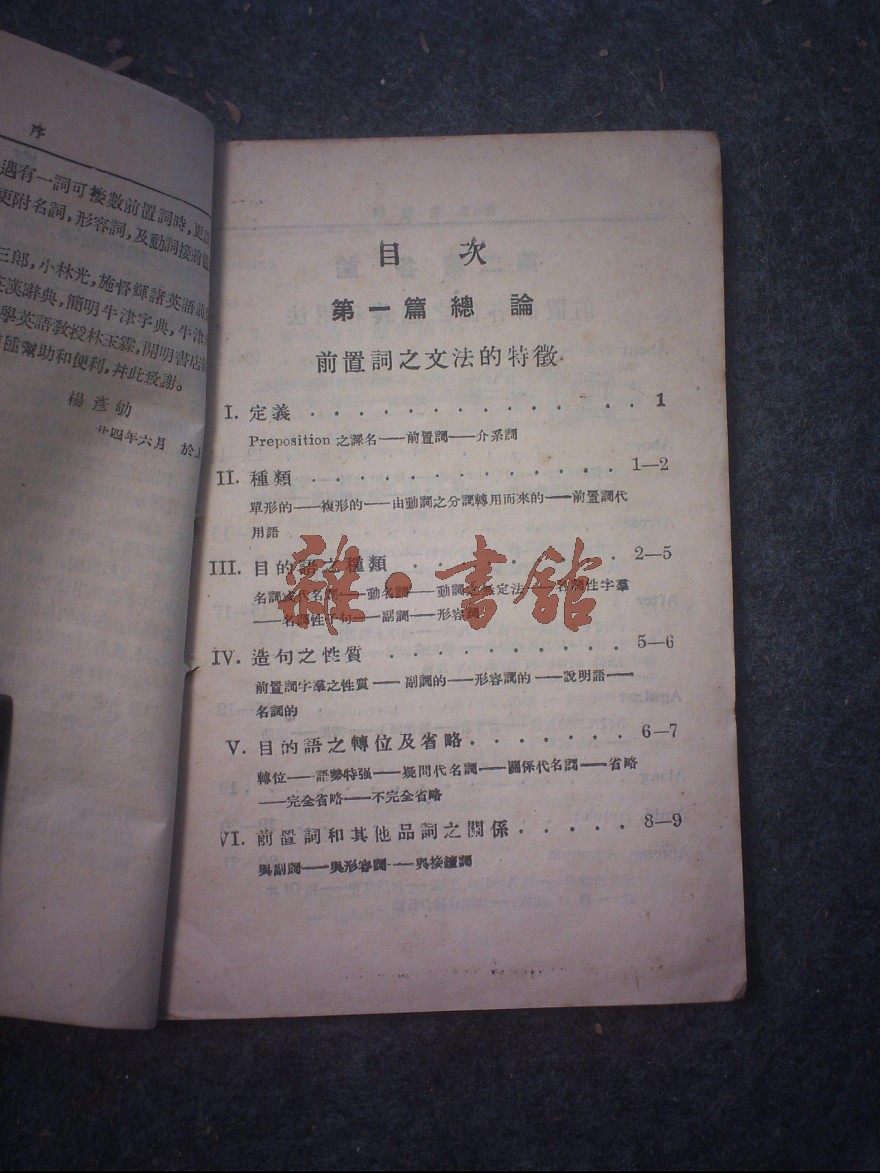 序
遇有一詞可接數前置詞時,更
更附名詞,形容詞,及動詞接前置
三郎,小林光,施督輝諸英語前
英漢辭典,簡明牛津字典,牛津
學英語教授林玉霖,開明書店
種幫助和便利,幷此致謝。
楊彥劬
廿四年六月 於上
目 次
第一篇 總論
前置詞之文法的特徵
I. 定義 . . . . . . . . . . . . . . 1
Preposition 之譯名——前置詞——介系詞
II. 種類 . . . . . . . . . . . . . 1—2
單形的——複形的——由動詞之分詞轉用而來的——前置詞代
用語
III. 目的語之種類 . . . . . . . . . . 2—5
名詞或代名詞——動名詞——動詞之無定法——名詞性字羣
——名詞性子句——副詞——形容詞
IV. 造句之性質 . . . . . . . . . . . 5—6
前置詞字羣之性質——副詞的——形容詞的——說明語——
名詞的
V. 目的語之轉位及省略 . . . . . . . 6—7
轉位——語勢特强——疑問代名詞——關係代名詞——省略
——完全省略——不完全省略
VI. 前置詞和其他品詞之關係 . . . . . 8—9
與副詞——與形容詞——與接續詞
雜·書館